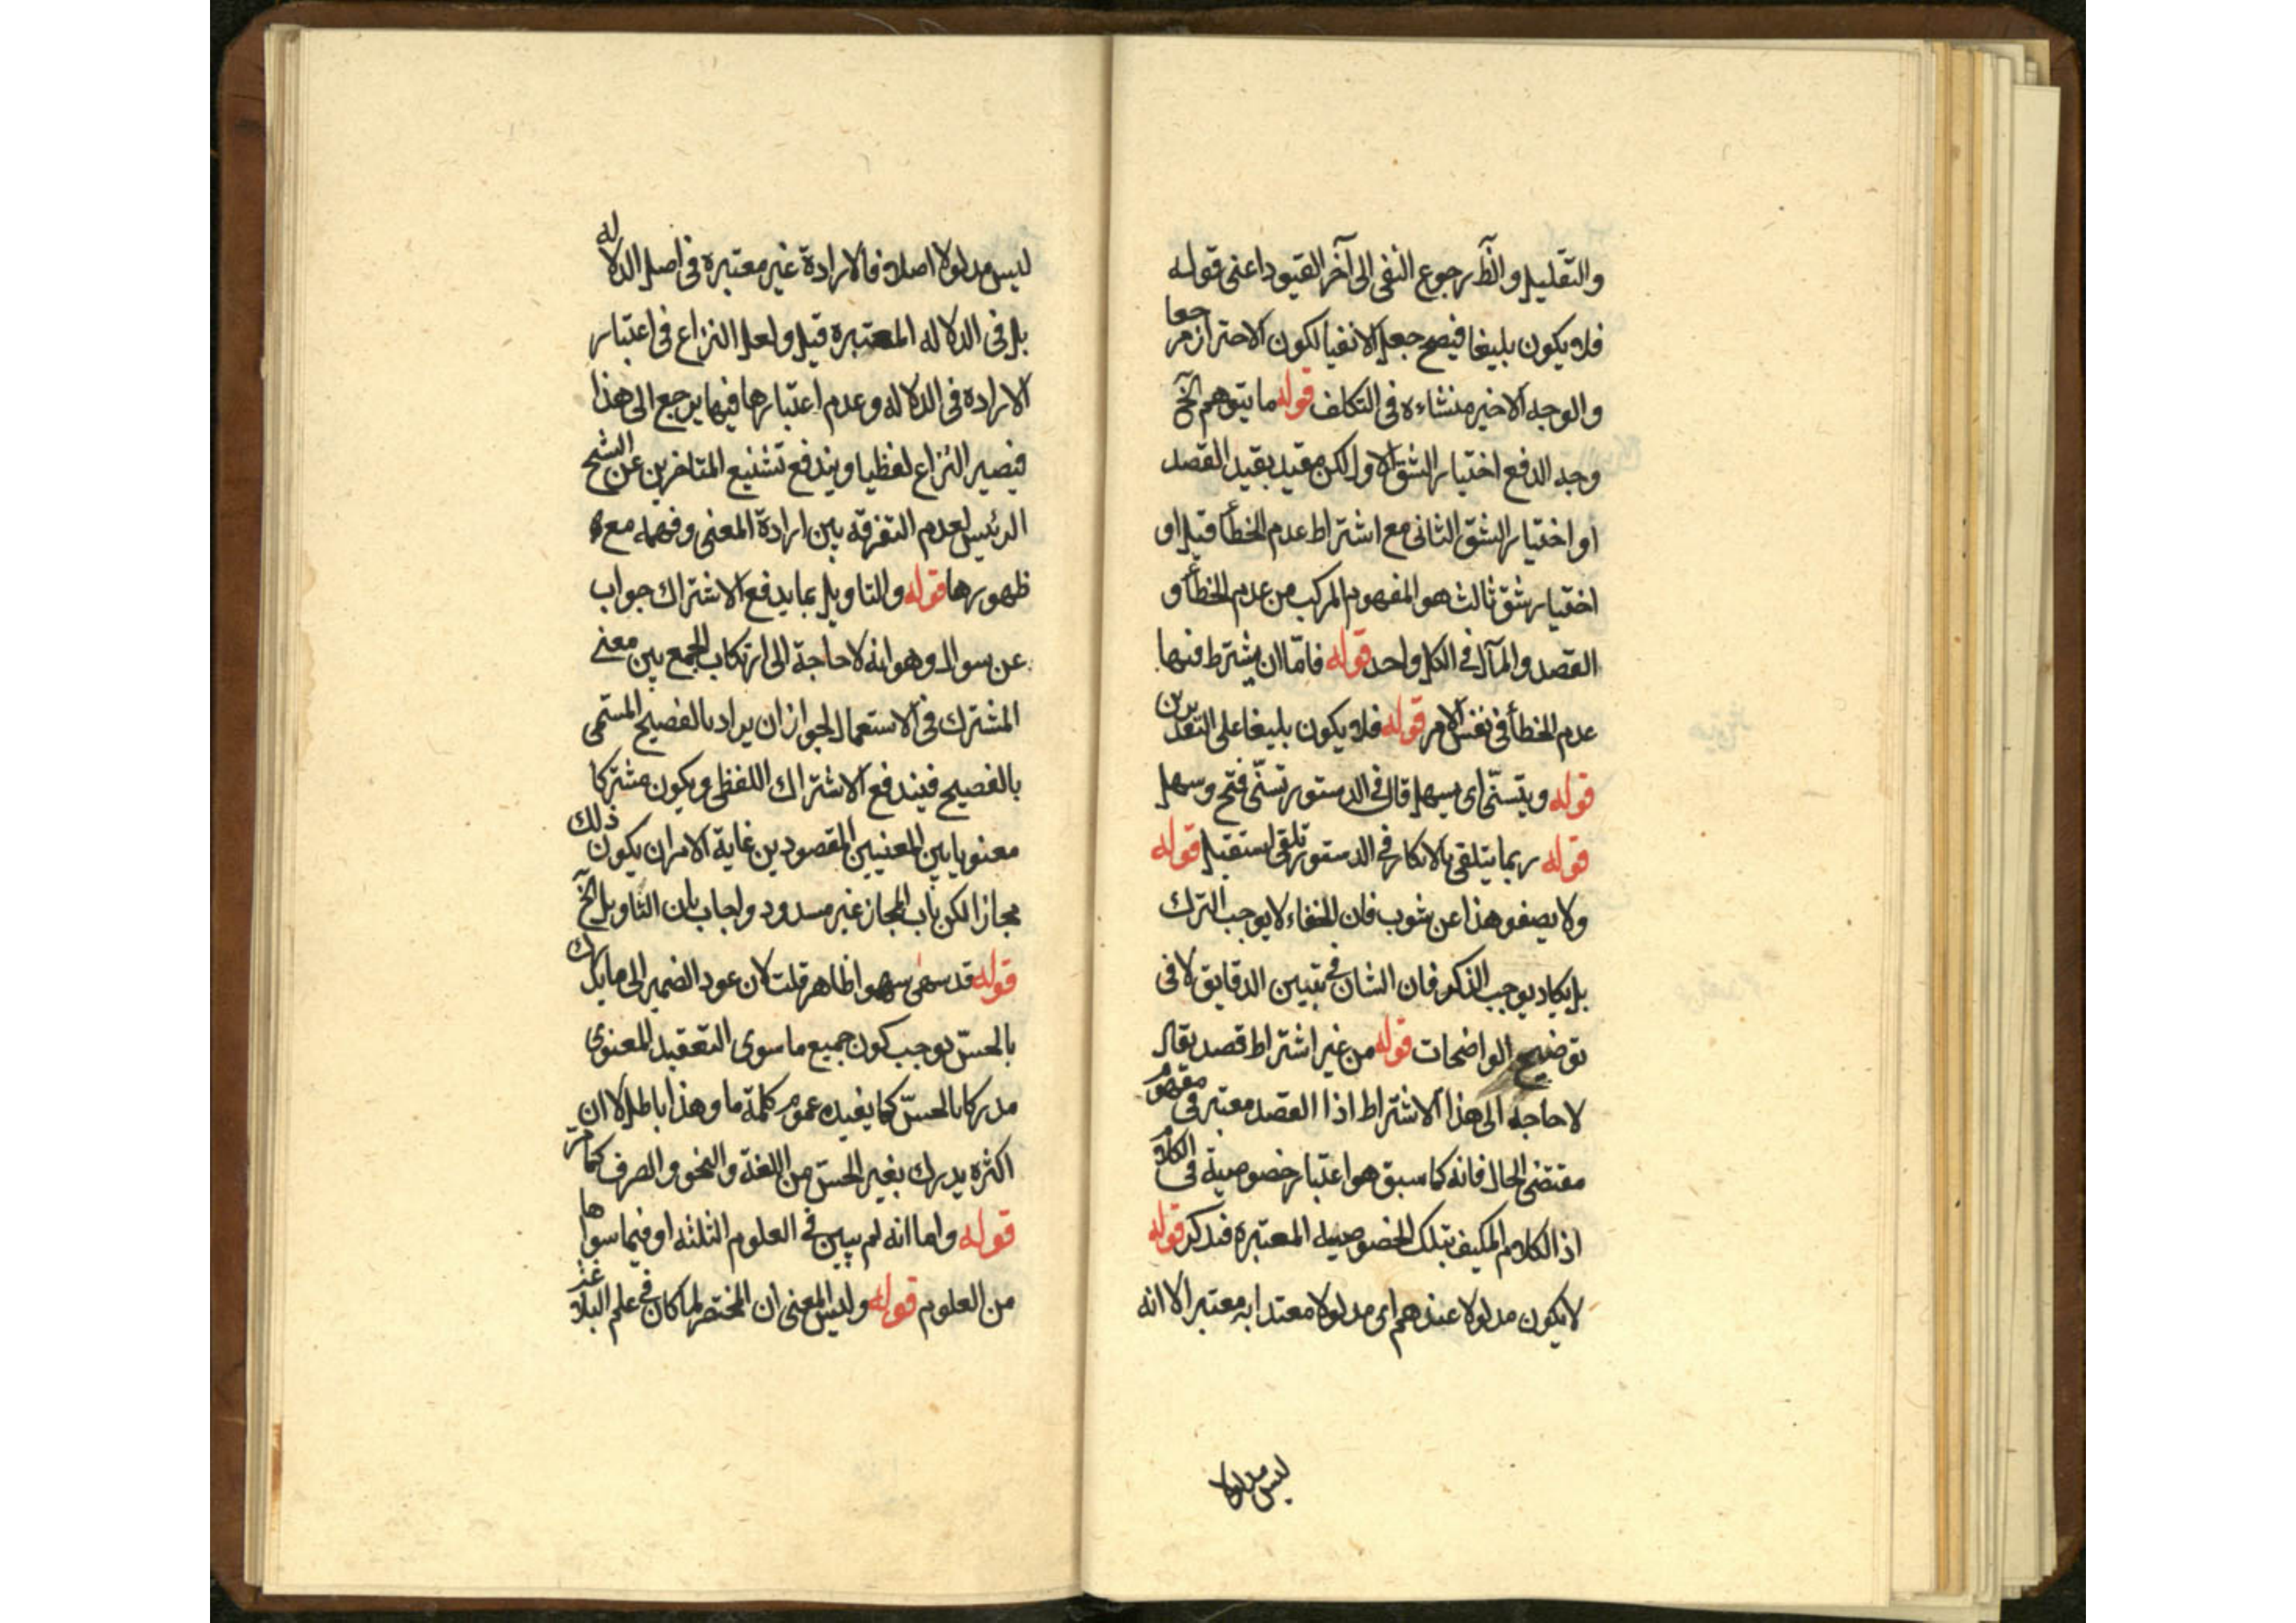 والتقليل والنظر رجوع النفى الى آخر القيود اعنى قوله
فلا يكون بليغا فيصح جعل الانفيا لكون الاحتراز مرجعا
والوجه الاخير منشاءه فى التكلف قوله ما يتوهم الخ
وجه الدفع اختيار الشق الاول لكن مقيد بقيد القصد
او اختيار الشق الثانى مع اشتراط عدم الخطأ قيل او
اختيار شق ثالث هو المفهوم المركب من عدم الخطأ و
القصد والمآل فى الكل واحد قوله فامّا ان يشترط فيها
عدم الخطأ فى نفس الامر قوله فلا يكون بليغا على التقديرين
قوله ويتسنّى اى يسهل قال فى الدستور تسنّى فتح وسهل
قوله ربما يتلقى بالانكار فى الدستور تلقى استقبل قوله
ولا يصفو هذا عن شوب فان الخفاء لا يوجب الترك
بل يكاد يوجب الذكر فان الشان فى تبيين الدقايق لا فى
توضيح الواضحات قوله من غير اشتراط قصد يقال
لا حاجة الى هذا الاشتراط اذا القصد معتبر فى مفهوم
مقتضى الحال فانه كما سبق هو اعتبار خصوصية فى الكلام
اذ الكلام المكيف بتلك الخصوصية المعتبرة فتدكر قوله
لا يكون مدلولا عندهم اى مدلولا معتدا به معتبر الا انه
ليس مدلولا
ليس مدلولا اصلا فالارادة غير معتبرة فى اصل الدلاله
بل فى الدلاله المعتبرة قيل ولعل النزاع فى اعتبار
الارادة فى الدلاله وعدم اعتبارها فيما يرجع الى هذا
فيصير النزاع لفظيا ويندفع تشنيع المتاخرين عن الشيخ
الرئيس لعدم التفرقه بين ارادة المعنى وفهمه مع
ظهورها قوله والتاويل بما يدفع الاشتراك جواب
عن سوال وهو انه لا حاجة الى ارتكاب الجمع بين معنى
المشترك فى الاستعمال لجواز ان يراد بالفصيح المسمى
بالفصيح فيندفع الاشتراك اللفظى ويكون مشتركا
معنويا بين المعنيين المقصودين غاية الامر ان يكون ذلك
مجازا لكن باب المجاز غير مسدود واجاب بان التاويل الخ
قوله قد سهى سهوا ظاهر قلت لان عود الضمير الى ما يدرك
بالحسّ يوجب كون جميع ما سوى التعقيد المعنوى
مدركا بالحسّ كما يفيده عموم كلمة ما وهذا باطل لان
اكثره يدرك بغير الحسّ من اللغة والنحو والصرف كما مرّ
قوله واما انه لم يبين فى العلوم الثلثه او فيما سواها
من العلوم قوله وليس المعنى ان المختصر لما كان فى علم البلاغة